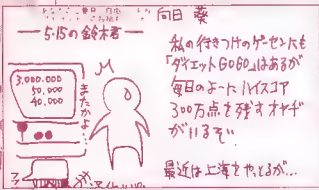 向日 葵
5.15の鈴木君
3,000,000
50,000
40,000
またかよ…
私の行きつけのゲーセンにも
「ダイエットGOGO」はあるが
毎日のよーにハイスコア
300万点を残すオヤヂ
がいるぞ。
最近は上海をやっとるが…